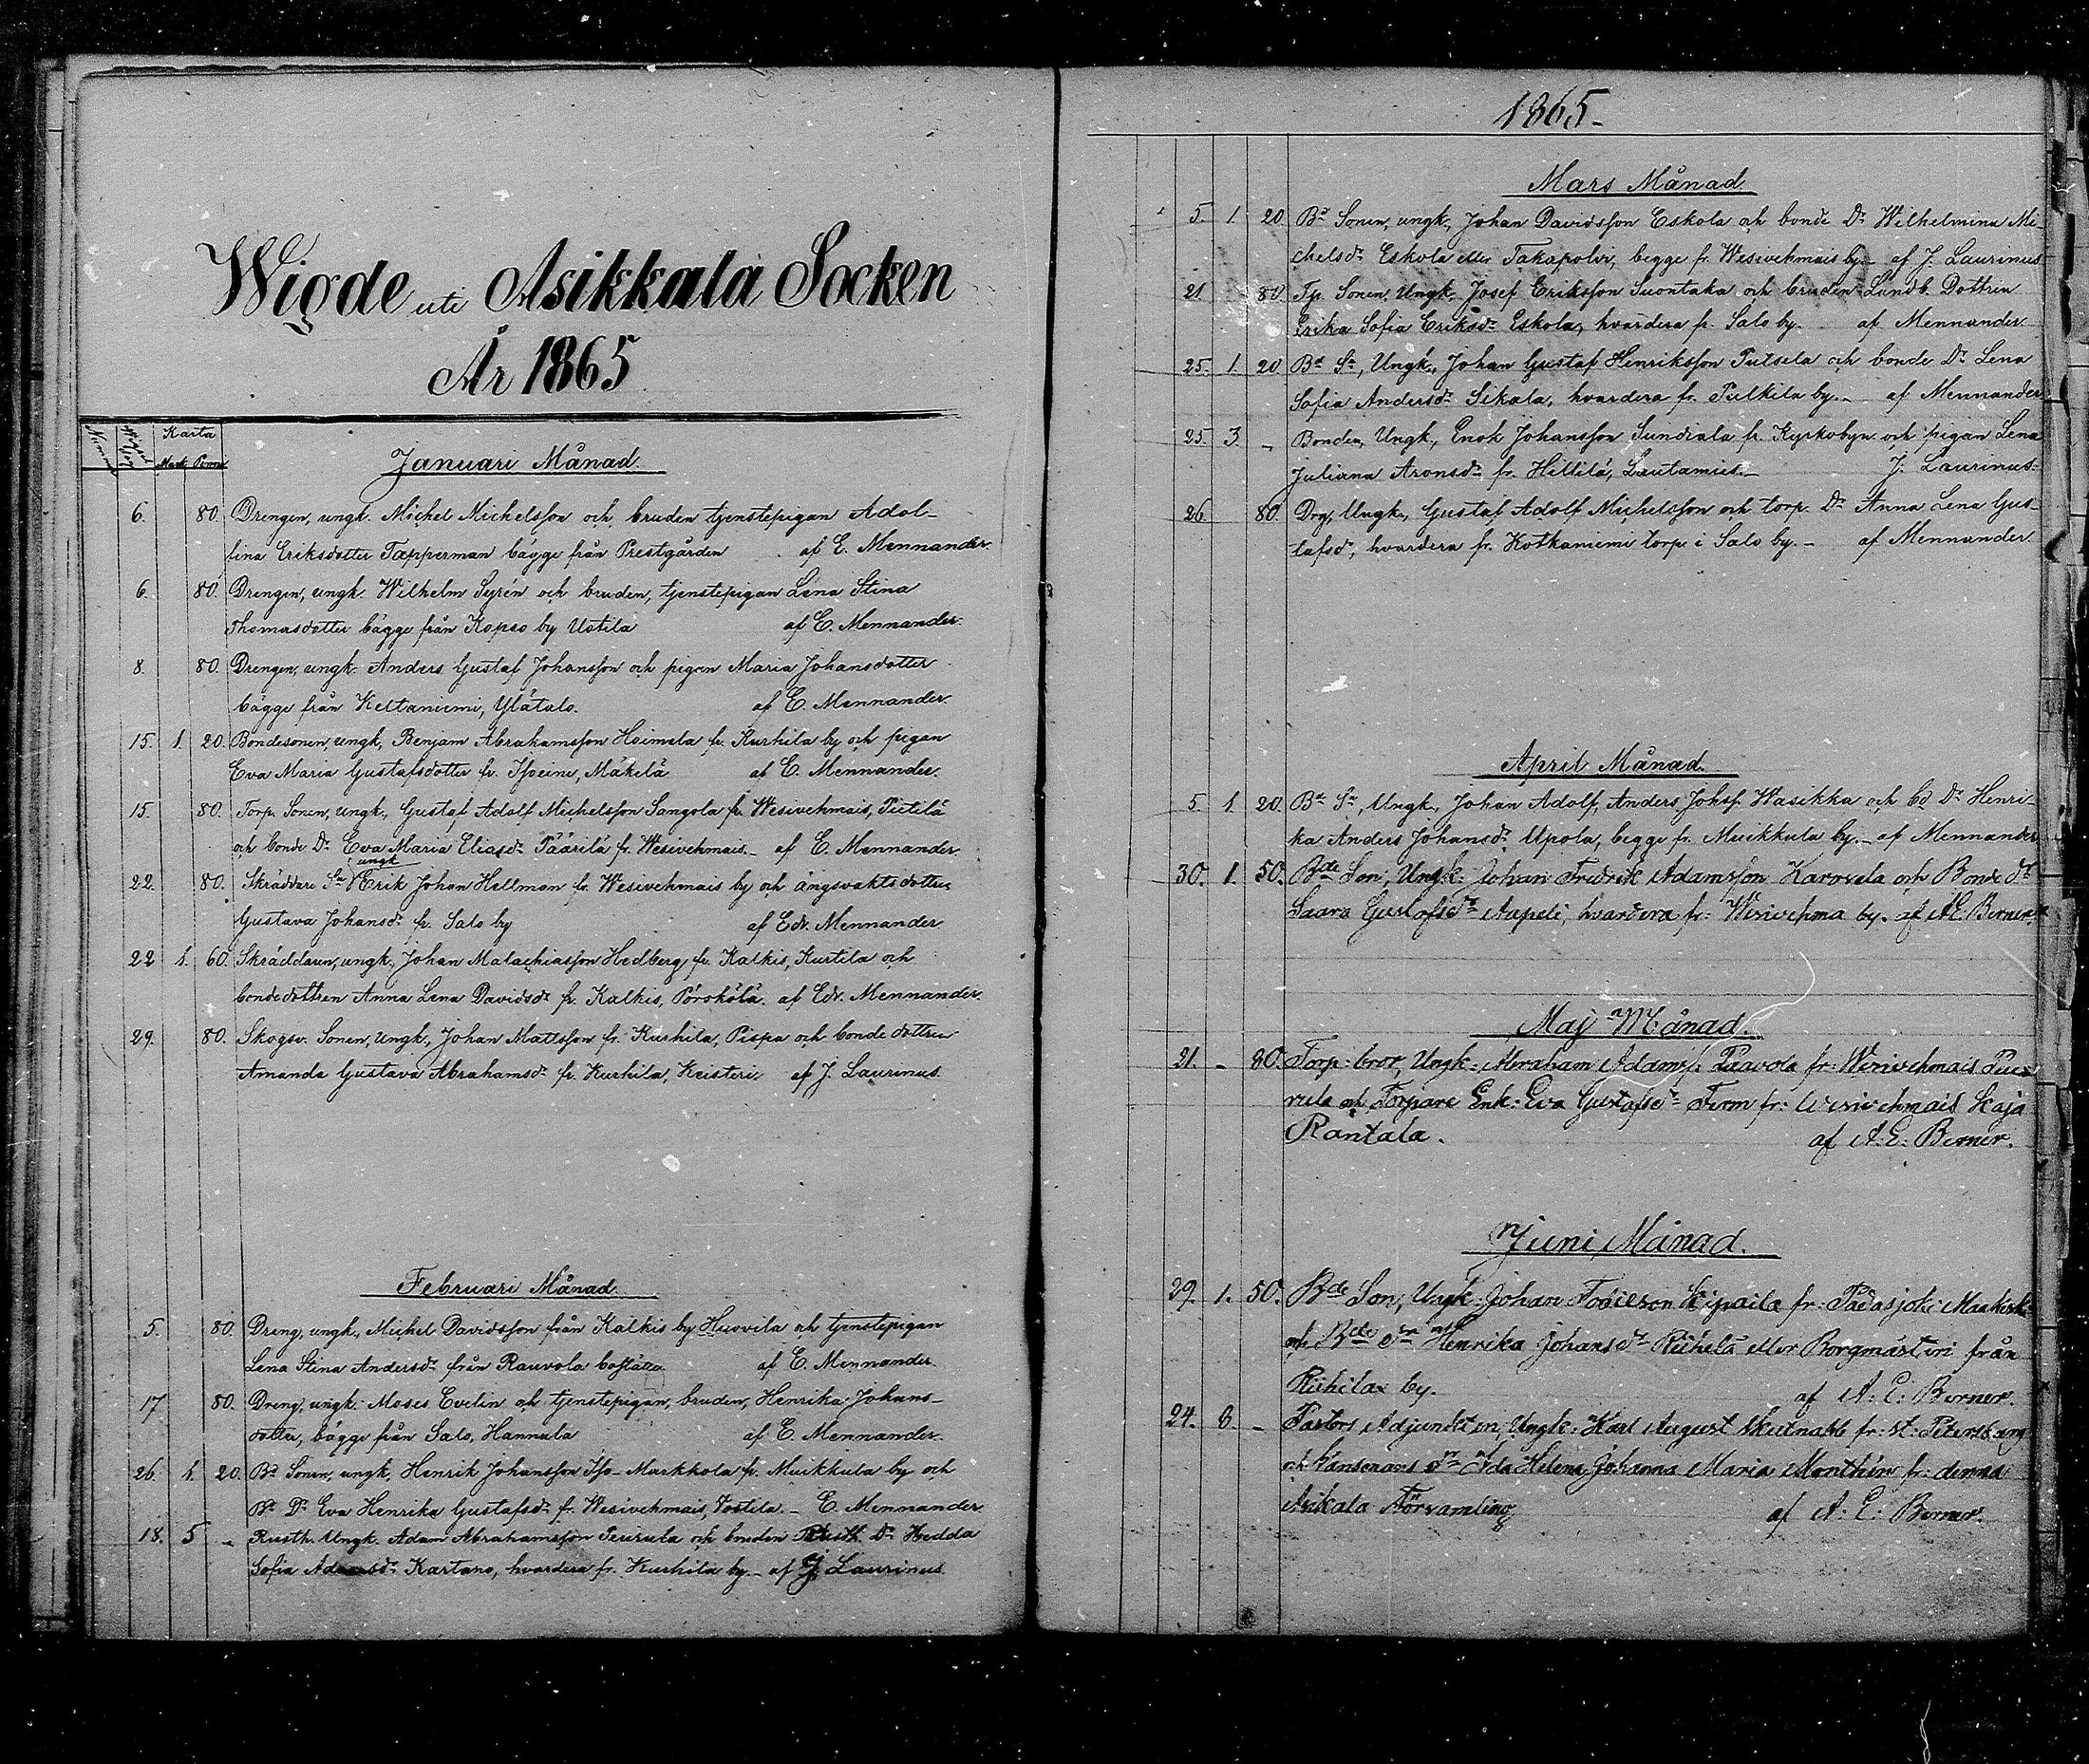 Wigde uti Asikkala Socken
År 1865
Karta
Mark Penni
Januari Månad.
6. 80. Drengen, ungk. Michel Michelsson och bruden tjenstepigan Adol-
fina Eriksdotter Tapperman bägge från Prestgården af E. Mennander.
6. 80. Drengen, ungk. Wilhelm Syrén och bruden, tjenstepigan Lena Stina
Thomasdotter bägge från Kopso by Ustila af E. Mennander.
8. 80. Drengen, ungk. Anders Gustaf Johansson och pigan Maria Johansdotter
bägge från Keltaniemi, Ylätalo. af E. Mennander.
15. 1. 20. Bondesonen, ungk, Benjam Abrahamsson Heimola fr. Kurhila by och pigan
Eva Maria Gustafsdotter fr. Mäkelä af E. Mennander.
15. 80. Torp. Sonen, ungk., Gustaf Adolf Michelsson Sangola fr. Wesivehmais, Pietilä
och bonde Dr. Eva Maria Eliasdr. Päärilä fr. Wesivehmais. af E. Mennander.
ungk
22. 80. Skräddare Sn. Erik Johan Hellman fr. Wesivehmais by och ängsvaktsdotter
Gustava Johansdr. fr. Salo by af Edv. Mennander.
22 1. 60. Skräddaren, ungk., Johan Malachiasson Hedberg fr. Kalkis, Kurtila och
bondedottren Anna Lena Davidsdr. fr. Kalkis, Pörökölä. af Edv. Mennander.
29. 80. Skogsv. Sonen, ungk., Johan Mattsson fr. Kurhila, Pispa och bonde dottren
Amanda Gustava Abrahamsdr. fr. Kurhila, Keisteri. af J. Laurinus.
Februari Månad.
5. 80. Dreng, ungk., Michel Davidsson från Kalkis by Huovila och tjenstepigan
Lena Stina Andersdr. från Rauvola af E. Mennander.
17 80. Dreng, ungk. Moses Evelin och tjenstepigan, bruden, Henrika Johans-
dotter, bägge från Salo, Hannula af E. Mennander.
26. 1. 20. Bd. Sonen, ungk, Henrik Johansson Iso-Markkola fr. Muikkula by och
Bd. Dr. Eva Henrika Gustafsdr. fr. Wesivehmais, E. Mennander
18. 5 - Rusth. Ungk. Adam Abrahamsson Peurula och bruden Rusth. Dr. Hedda
Sofia Adamsdr. Kartano, hvardera fr. Kurhila by. af J. Laurinus.
1865.
Mars Månad.
5. 1. 20. Bd. Sonen, ungk., Johan Davidsson Eskola och bonde Dr. Wilhelmina Mi-
chelsdr. Eskola eller Takapolvi, begge fr. Wesivehmais by. af J. Laurinus
21 80. Tp. Sonen, Ungk. Josef Eriksson Suontaka och bruden Landb. Dottren
Erika Sofia Eriksdr. Eskola, hvardera fr. Salo by. af Mennander.
25. 1. 20 Bd. Sn., Ungk., Johan Gustaf Henriksson Putsela och bonde Dr. Lena
Sofia Andersdr. Sikala, hvardera fr. Pulkila by. af Mennander
25. 3. - Bonden, Ungk., Enok Johansson Sundiala fr. Kyrkobyn och pigan Lena
Juliana Aronsdr. fr. Hillilä, Lautamies. J. Laurinus.
26 80. Drg, Ungk., Gustaf Adolf Michelsson och torp. Dr. Anna Lena Gus-
tafsdr, hvardera fr. Kotkaniemi torp i Salo by. af Mennander.
April Månad.
5. 1. 20. Bd. Sn, Ungk., Johan Adolf, Anders Johsf. Wasikka och bd. Dr. Henri-
ka Anders Johansdr. Upola, begge fr. Muikkula by. af Mennander
30. 1. 50. Bde Son, Ungk: Johan Fredrik Adamsson Karvela och Bonde dr.
Saara Gustafsdr Aapeli, hvardera fr: Wesivehma by. af A.E. Berner.
Maj Månad.
21. - 80. Torp: bror, Ungk: Abraham Adamss: Paavola fr: Wesivehmais Peu-
rula och Torpare Enk: Eva Gustafsdr Ferm fr: Wesivehmais Kaja
Rantala. af A. E. Berner.
Juni Månad.
29. 1. 50. Bde Son, Ungk: Johan fr: Padasjoki
och Bde Henrika Johansdr Riihelä eller Borgmästeri från
by. af A: E: Berner.
24. 8. - Pastors Adjunkten, Ungk: Karl August Skutnabb fr: St: Petersburg
och Ida Helena Johanna Maria Monthén fr: denna
Asikala Församling af A: E: Berner.